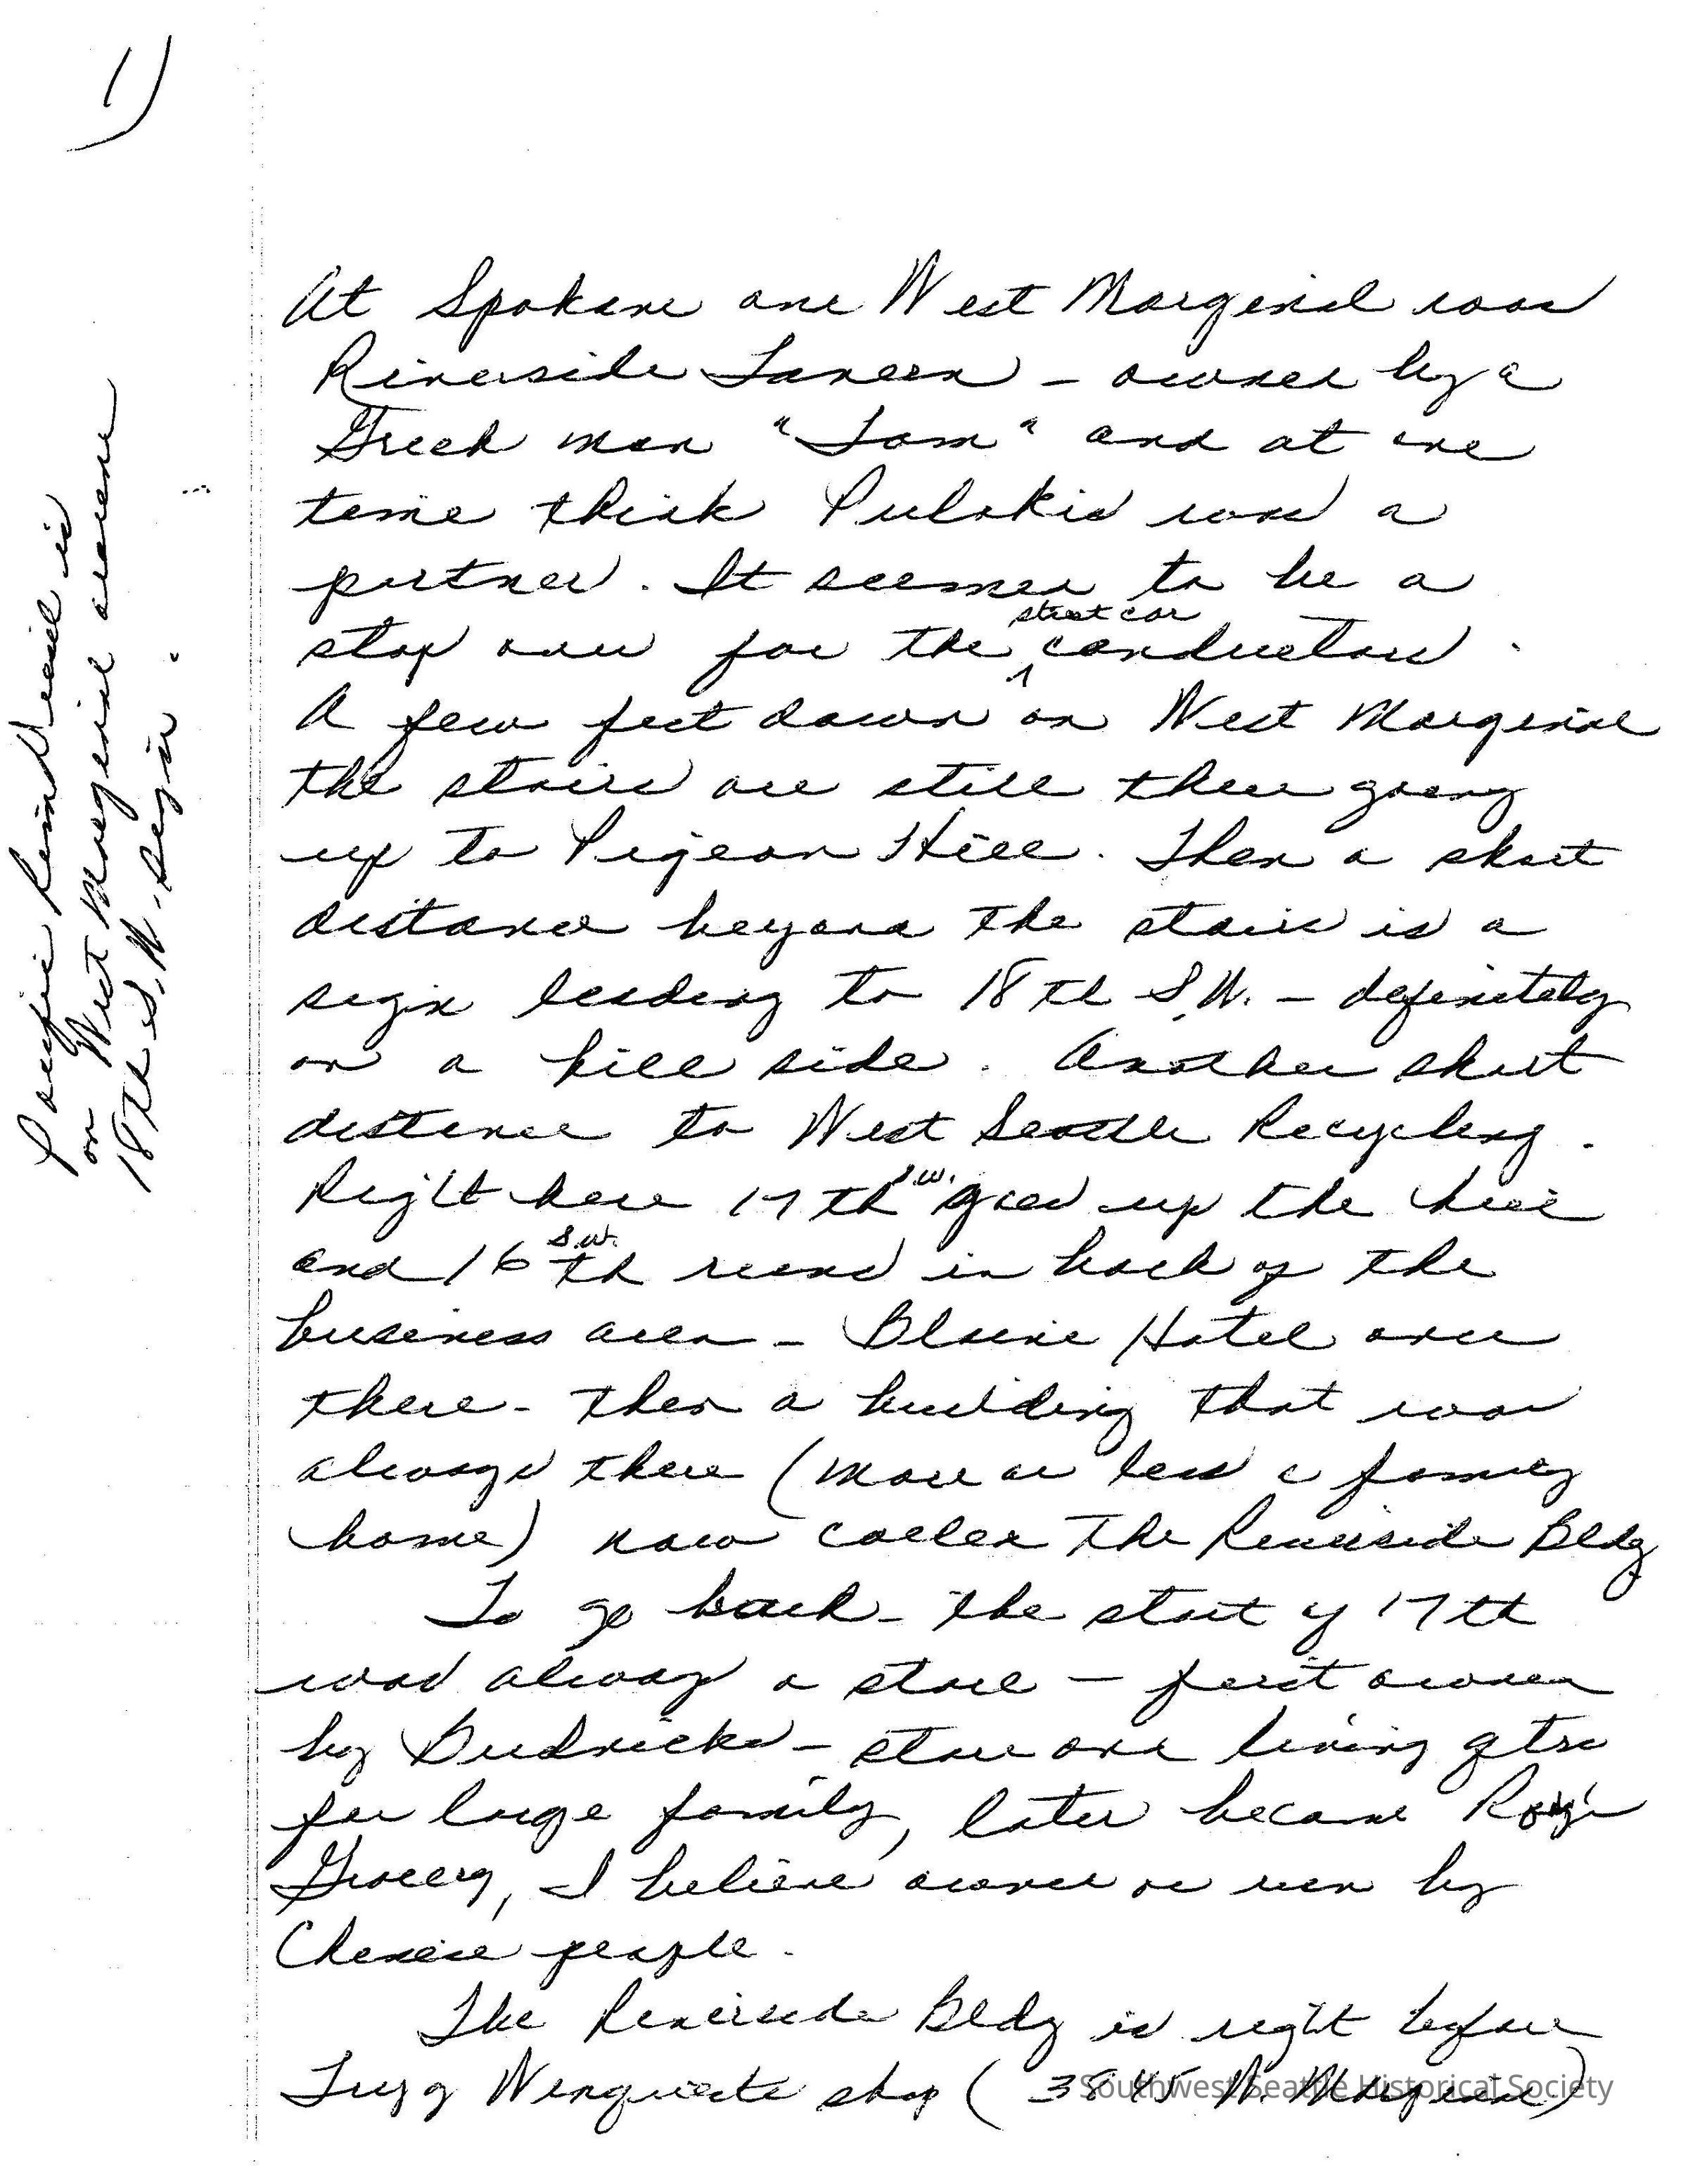 1)
At Spokane and West Marginal was
Riverside Tavern - owned by a
Greek man "Tom" and at one
time think Pulakis was a
partner. It seemed to be a
street car
stop over for the conductors.
A few feet down on West Marginal
the stairs are still there going
up to Pigeon Hill. Then a short
distance beyond the stairs is a
sign leading to 18th S.W. - definitely
on a hill side. Another short
distance to West Seattle Recycling.
Right here 17th S.W. goes up the hill
and 16th S.W. runs in back of the
business area - Blaine Hotel over
there - then a building that was
always there (more or less a family
home) now called The Riverside Bldg
To go back - the start of 17th
was always a store - first owned
by Budnicks - store and living qtrs
for large family, later became Roy's
Grocery, I believe owned or run by
Chinese people.
The Riverside Bldg is right before
shop (3845 W. Marginal)
on West Marginal around
18th S.W. sign.
Southwest Seattle Historical Society